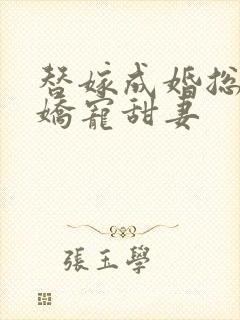 替嫁成婚总
嬌寵甜妻
張玉學